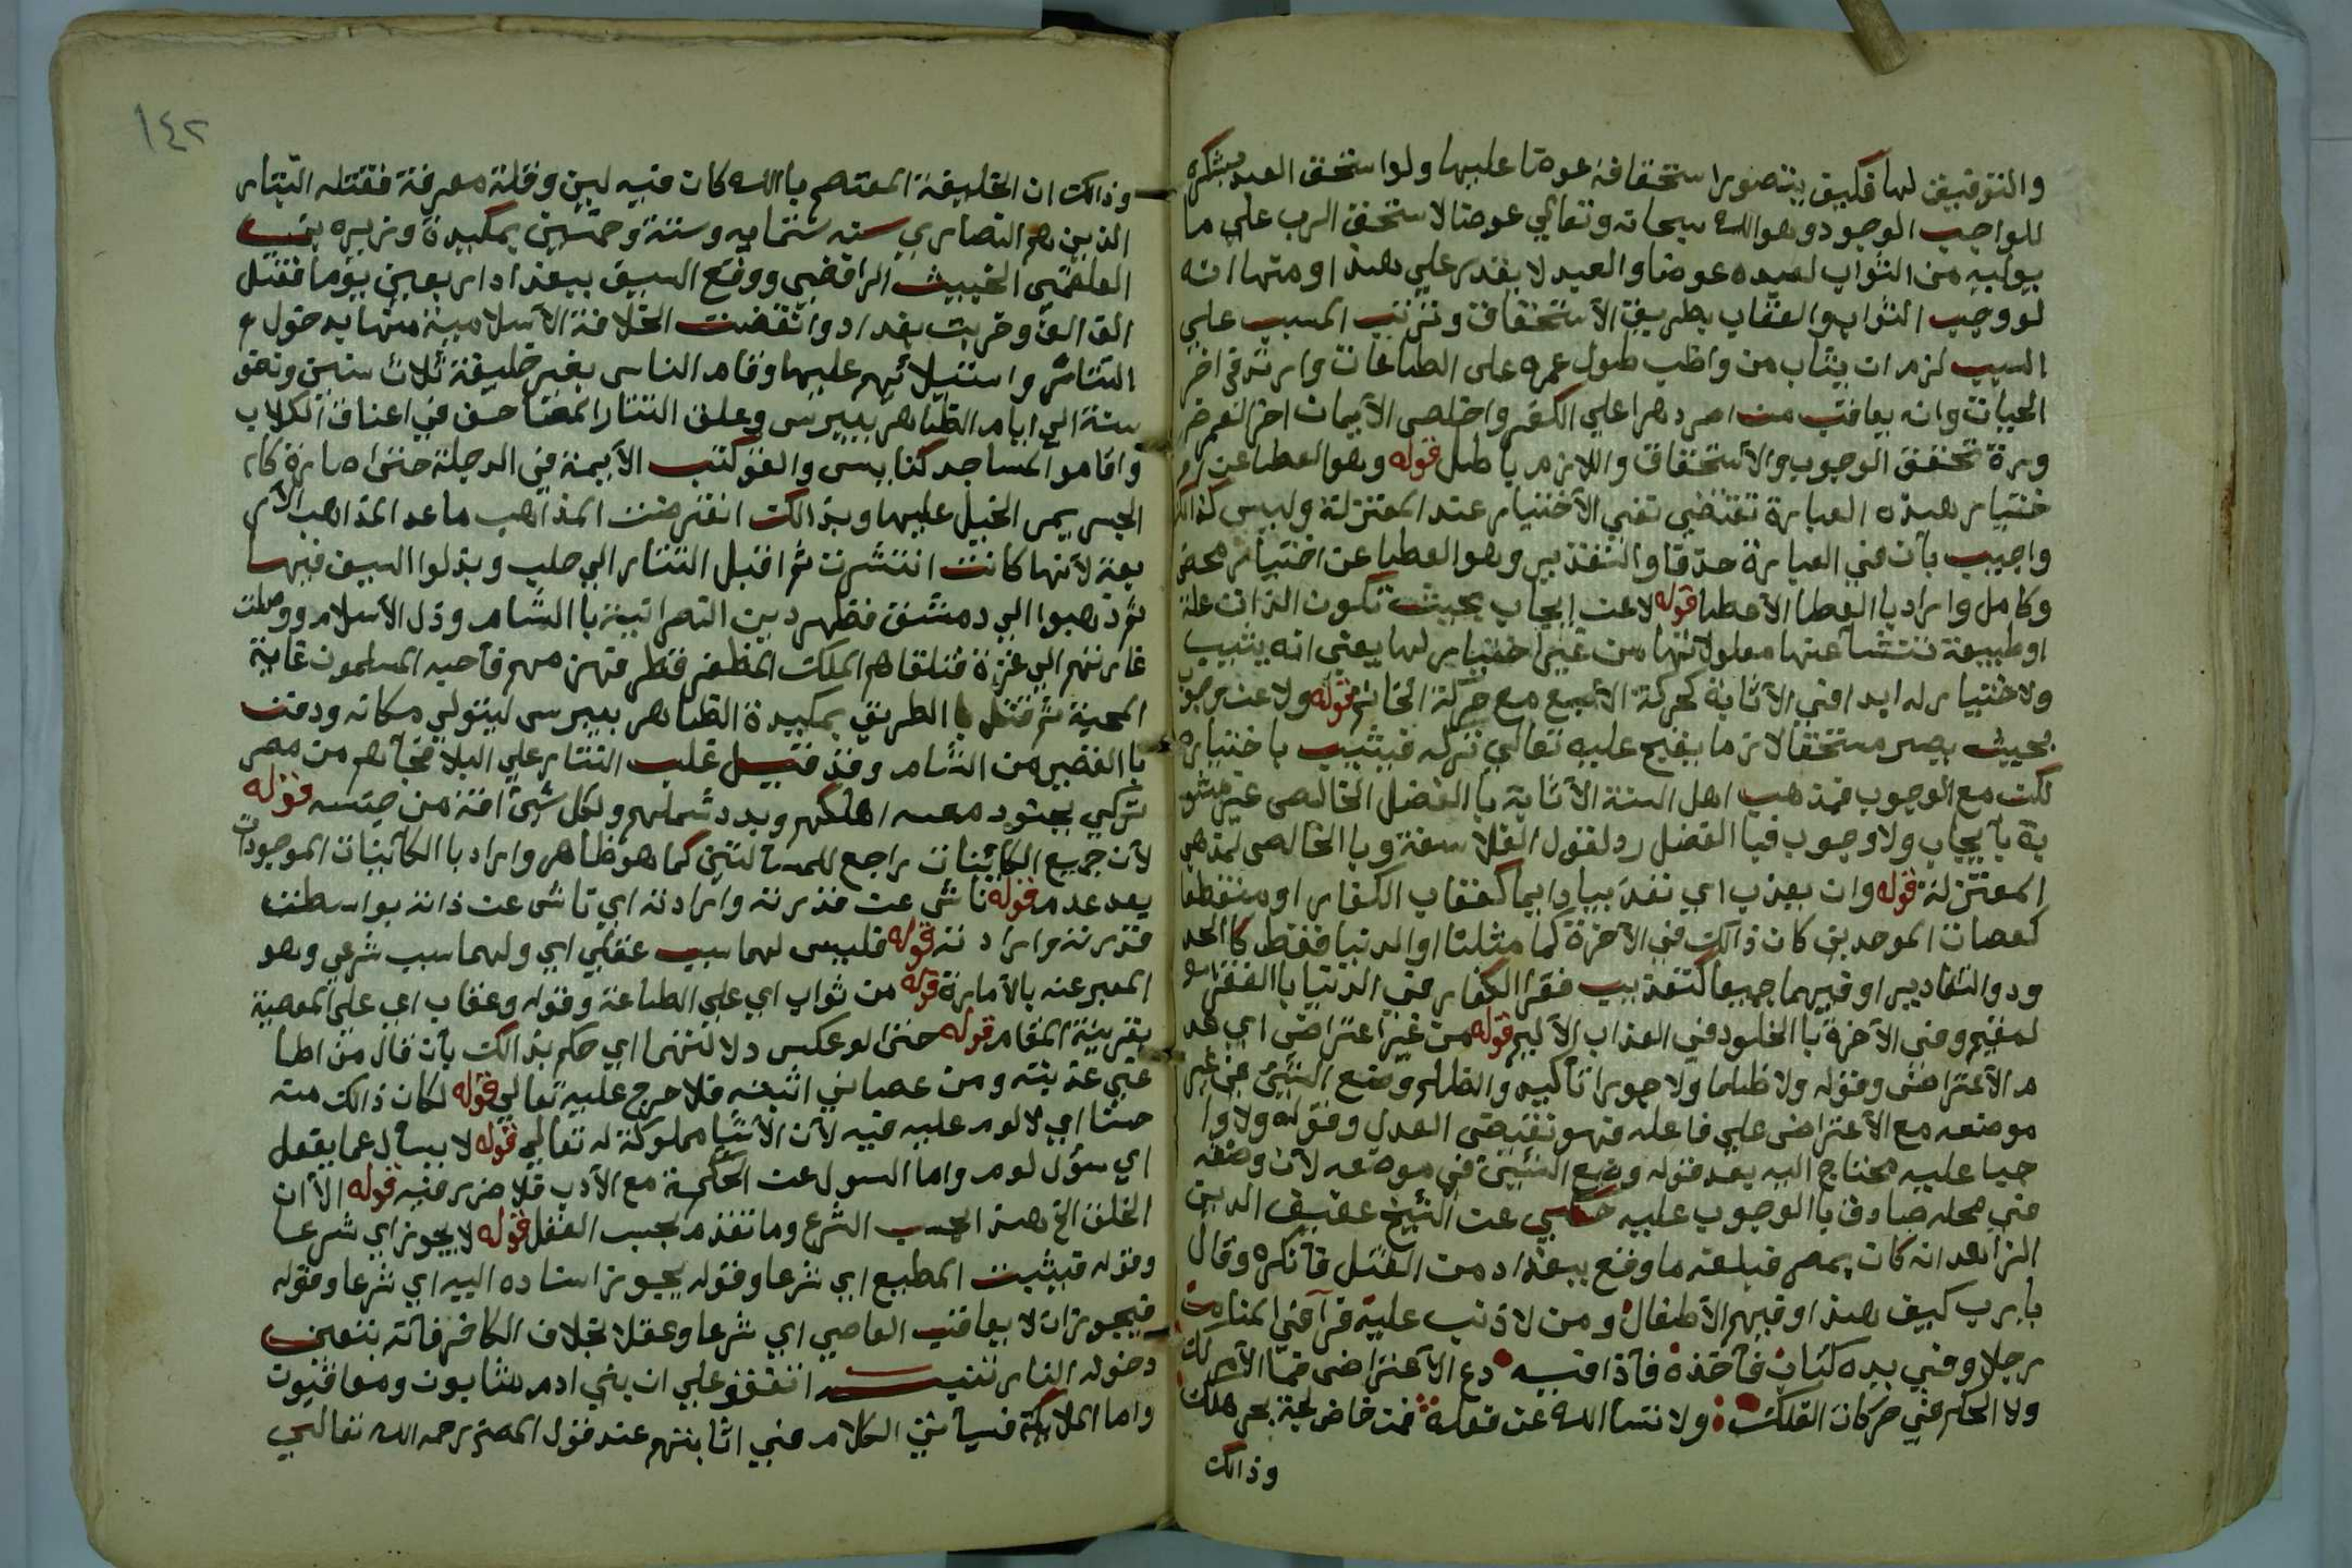 والتوفيق لها فكيف يتصور استحقاقه عوضا عليها ولو استحق العبد بشكره
للواجب الوجود وهو الله سبحانه وتعالي عوضا لاستحق الرب علي ما
يوليه من الثواب لعبده عوضا والعبد لا يقدر علي هذا ومنها انه
لو وجب الثواب والعقاب بطريق الاستحقاق وترتب المسبب علي
السبب لزم ان يثاب من واظب طول عمره على الطاعات وارتد في اخر
الحيات وانه يعاقب من اصر دهرا علي الكفر واخلص الأيمان اخر العمر ضر
ورة تحقق الوجوب والأستحقاق واللازم باطل قوله وهو العطا عن ا
ختيار هذه العبارة تقتضي نفي الأختيار عند المعتزلة وليس كذالك
واجيب بأن في العبارة حذفا والتقدير وهو العطا عن اختيار محض
وكامل واراد بالعطا الأعطا قوله لا عن ايجاب بحيث تكون الذات علة
او طبيعة تنشأ عنها معلولاتها من غير اختيار لها يعني انه يثيب
ولا ختيار له ابدا في الأثابة كحركة الأصبع مع حركة الخاتم قوله ولا عن وجوب
بحيث يصير مستحقا لازما يقبح عليه تعالي تركه فيثيب باختياره
لكن مع الوجوب فمذهب اهل السنة الأثابة با الفضل الخالص غير مشو
بة بأيجاب ولا وجوب فبا الفضل رد لقول الفلاسفة وبا الخالص لمذهب
المعتزلة قوله وان يعذب اي تعذيبا دايما كعقاب الكفار او منقطعا
كعصات الموحدين كان ذالك في الآخرة كما مثلنا او الدنيا فقط كا الحد
ود والتعاديير او فيهما جميعا كتعذيب فقرا الكفار في الدنيا با الفقر
لمقيم وفي الآخرة با الخلود في العذاب الأليم قوله من غير اعتراض اي عد
م الأعتراض وقوله ولا ظلما ولا جورا تأكيد والظلم وضع الشيئ في غير
موضعه مع الأعتراض علي فاعله فهو نقيض العدل وقوله ولا وا
جبا عليه محتاج اليه بعد قوله وضع الشيئ في موضعه لأن وضعه
في محله صادق با الوجوب عليه حكي عن الشيخ عفيف الدين
الزاهد انه كان بمصر فبلغه ما وقع ببغداد من القتل فأنكره وقال
يا رب كيف هذا وفيهم الأطفال ومن لا ذنب عليه فرآ في المنام
رجلا وفي يده كتاب فأخذه فأذا فيه دع الأعتراض فما الأمر لك
ولا الحكم في حركات الفلك ولا تسأ الله عن فعله فمن خاض لجة بحر هلك
وذالك
١٤٢
وذالك ان الخليفة المعتصم با الله كان فيه لين وقلة معرفة فقتله التتار
الذين هم النصاري سنه ستمايه وستة وخمسين بمكيدة وزيره بن
العلقمي الخبيث الرافضي ووقع السيف ببغداد اربعين يوما فقتل
الف الف وخربت بغداد وانقضت الخلافة الأسلامية منها بدخول
التتار واستيلائهم عليها وقام الناس بغير خليفة ثلاث سنين ونصف
سنة الي ايام الظاهر بيبرس وعلق التتار المصاحف في اعناق الكلاب
واقاموا المساجد كنايس والقو كتب الأيمة في الدجلة حتى صارة كا
الجسر يمر الخيل عليها وبذالك انقرضت المذاهب ما عد المذاهب الأر
بعة لأنها كانت انتشرت ثم اقبل التتار الي حلب وبذلوا السيف فيها
ثم ذهبوا الي دمشق فظهر دين النصرانية با الشام وذل الأسلام ووصلت
غارتهم الي غزة فتلقاهم الملك المظفر قطر فهزمهم فأحبه المسلمون غاية
المحبة ثم قتل با الطريق بمكيدة الظاهر بيبرس ليتولي مكانه ودفن
با القصير من الشام وقد قيل غلب التتار علي البلا فجأهم من مصر
تركي يجود معسه اهلكهم وبدد شملهم ولكل شئ افة من جنسه قوله
لأن جميع الكاينات راجع للمسألتين كما هو ظاهر واراد با الكاينات الموجودات
بعد عدم قوله ناشي عن قدرته وارادته اي ناشي عن ذاته بواسطت
قدرته وارادته قوله فليس لهما سبب عقلي اي ولهما سبب شرعي وهو
المعبر عنه بالأمارة قوله من ثواب اي علي الطاعة وقوله وعقاب اي علي المعصية
بقرينة المقام قوله حتى لو عكس دلالتهما اي حكم بذالك بأن قال من اطا
عني عذبته ومن عصاني اثبته فلا حرج عليه تعالي قوله لكان ذالك منه
حسنا اي لا لوم عليه فيه لأن الأشيا مملوكة له تعالي قوله لا يسأل عما يفعل
اي سؤل لوم واما السول عن الحكمة مع الأدب فلا ضرر فيه قوله الأ ان
الخلف الخ هذ الحسب الشرع وما تقدم بحسب العقل قوله لا يجوز اي شرعا
وقوله فيثيب المطيع اي شرعا وقوله يجوز اسناده اليه اي شرعا وقوله
فيجوز ان لا يعاقب العاصي اي شرعا وعقلا بخلاف الكافر فأنه يتعين
دخوله النار تنبيه اتفقو علي ان بني ادم مثابون ومعاقبون
واما الملايكة فسيأتي الكلام في اثابتهم عند قول المصنر رحمه الله تعالي